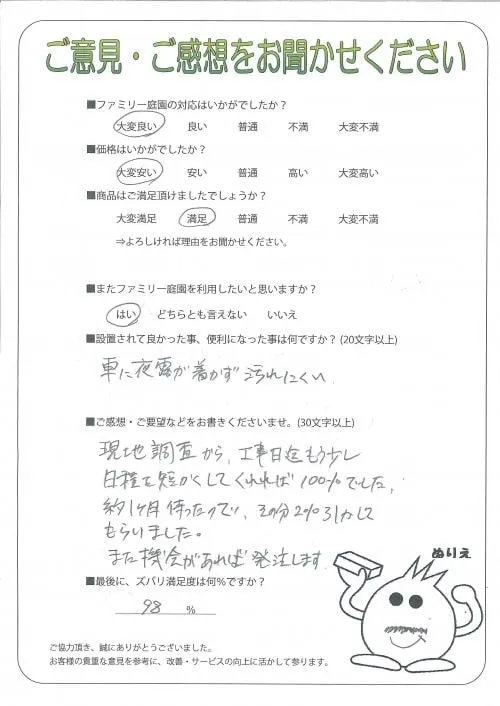 ご意見・ご感想をお聞かせください
■ファミリー庭園の対応はいかがでしたか？
大変良い 良い 普通 不満 大変不満
■価格はいかがでしたか？
大変安い 安い 普通 高い 大変高い
■商品はご満足頂けましたでしょうか？
大変満足 満足 普通 不満 大変不満
⇒よろしければ理由をお聞かせください。
■またファミリー庭園を利用したいと思いますか？
はい どちらとも言えない いいえ
■設置されて良かった事、便利になった事は何ですか？(20文字以上)
車に夜露が着かず汚れにくい
■ご感想・ご要望などをお書きくださいませ。(30文字以上)
現地調査から、工事日迄もう少し
日程を短かくしてくれれば100%でした。
約1ヶ月待ったので、その分2%引かして
もらいました。
また機会があれば発注します
ぬりえ
■最後に、ズバリ満足度は何％ですか？
98 %
ご協力頂き、誠にありがとうございました。
お客様の貴重な意見を参考に、改善・サービスの向上に活かして参ります。